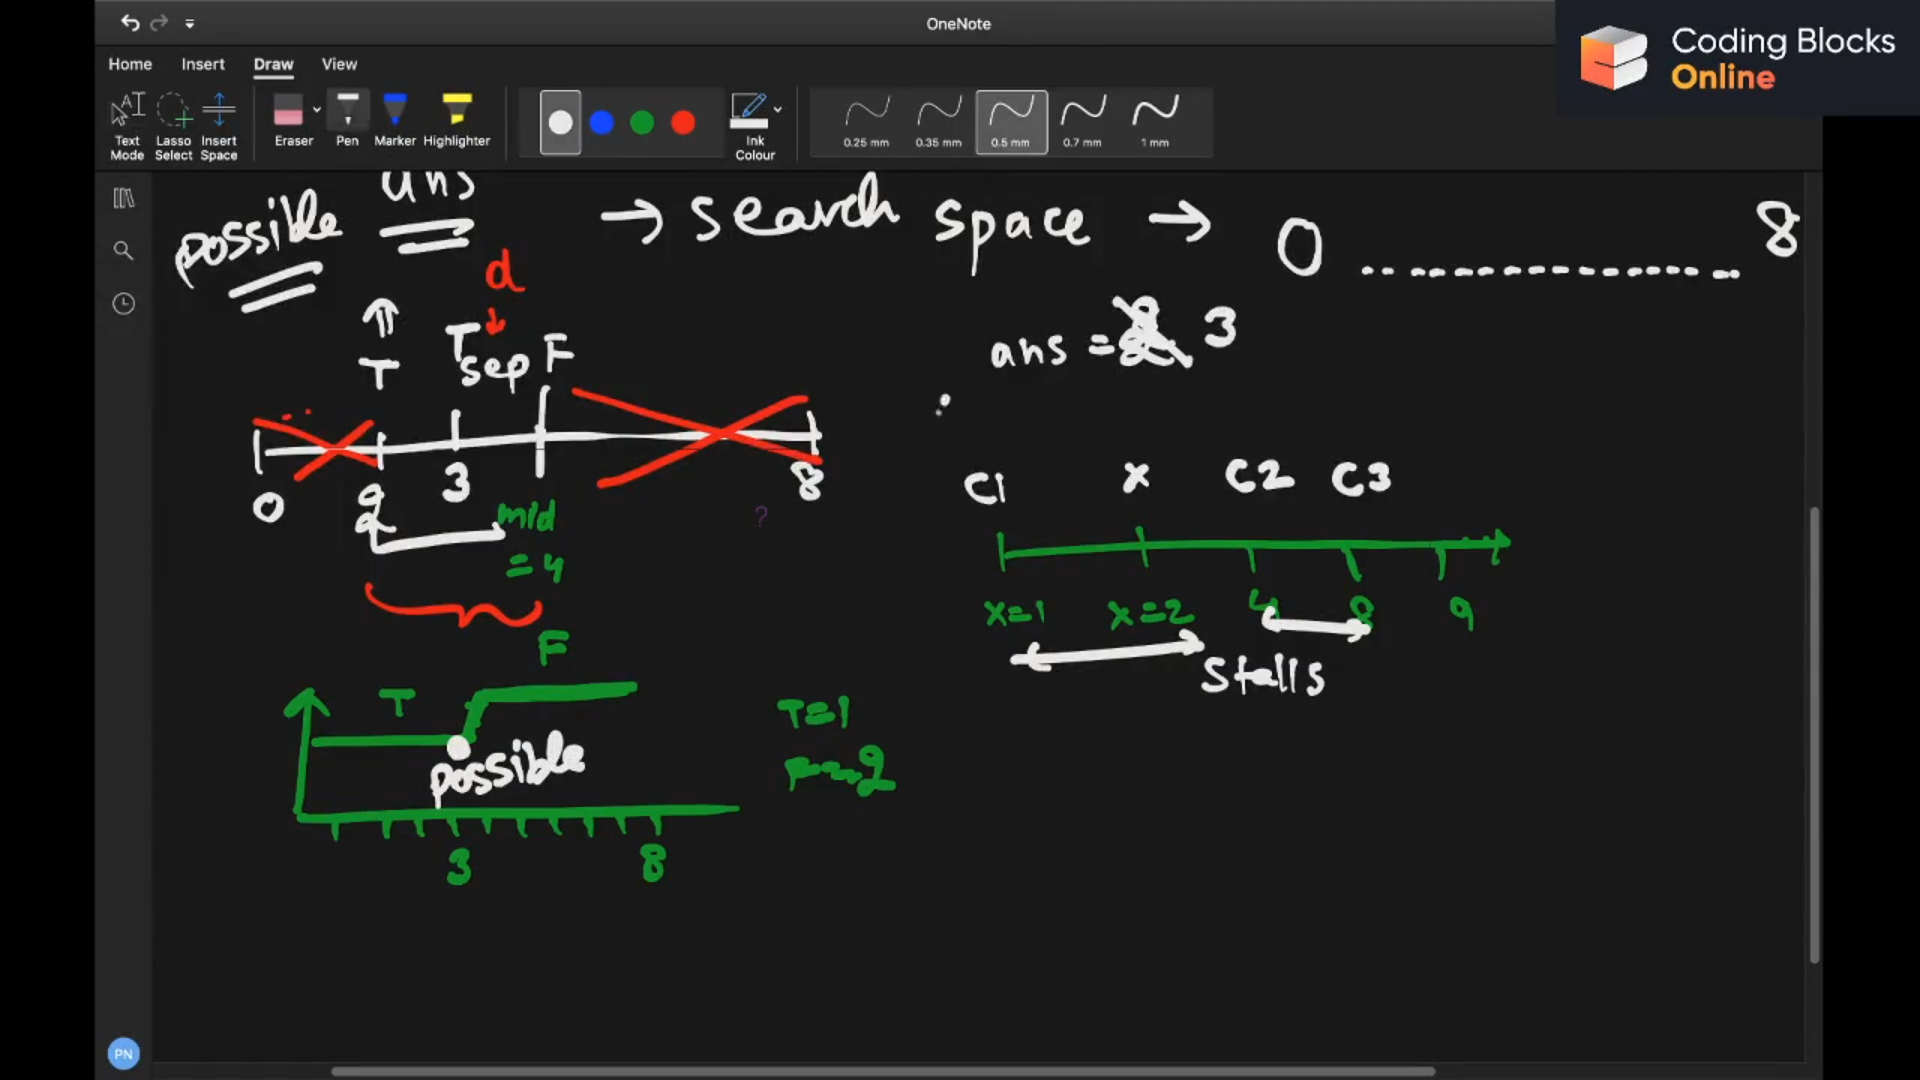 OneNote
Coding Blocks
Online
Home Insert Draw View
Text Mode
Lasso Select
Insert Space
Eraser
Pen
Marker
Highlighter
Ink Colour
0.25 mm
0.35 mm
0.5 mm
0.7 mm
1 mm
possible ans → search space → 0 8
d
T T sep F
ans = 2 3
0 2 3 8
mid
= 4
?
C1 x C2 C3
x=1 x=2 4 8 9
Stalls
F
T
possible
T=1
F=2
3 8
PN